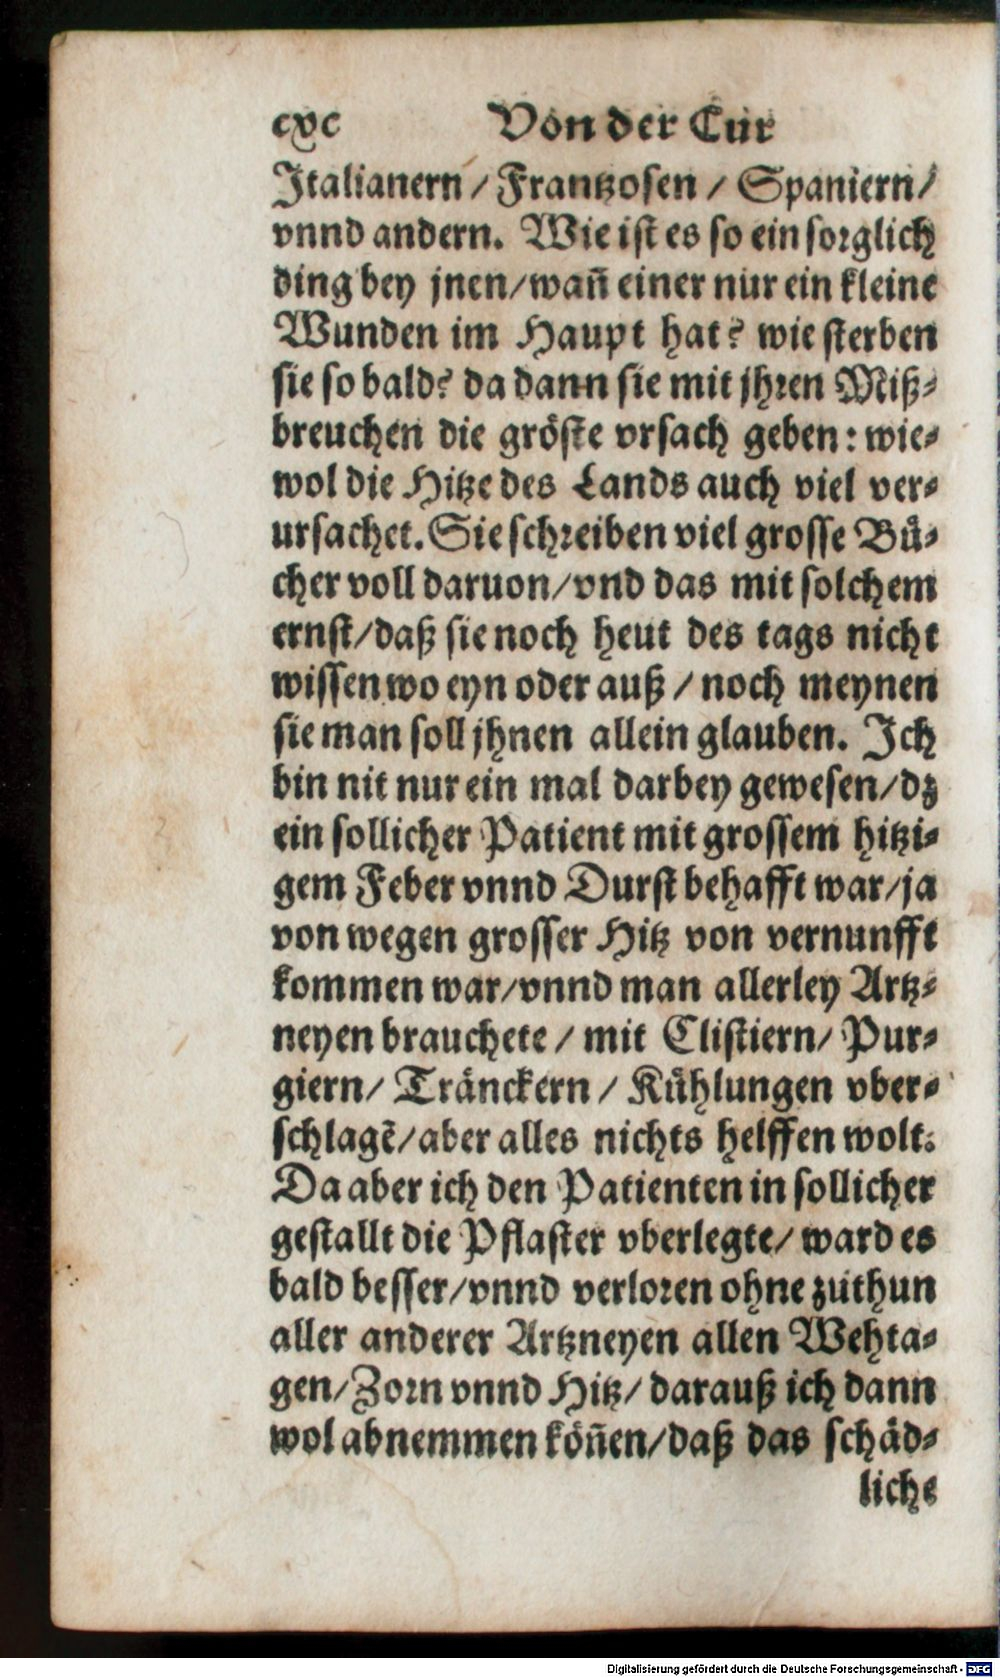 cxc Von der Cur
Italianern / Frantzosen / Spaniern /
vnnd andern. Wie ist es so ein sorglich
ding bey jnen/wañ einer nur ein kleine
Wunden im Haupt hat? wie sterben
sie so bald? da dann sie mit jhren Miß-
breuchen die gröste vrsach geben: wie-
wol die Hitze des Lands auch viel ver-
ursachet. Sie schreiben viel grosse Bü-
cher voll daruon/vnd das mit solchem
ernst/daß sie noch heut des tags nicht
wissen wo eyn oder auß / noch meynen
sie man soll jhnen allein glauben. Ich
bin nit nur ein mal darbey gewesen/dz
ein sollicher Patient mit grossem hitzi-
gem Feber vnnd Durst behafft war/ja
von wegen grosser Hitz von vernunfft
kommen war/vnnd man allerley Artz-
neyen brauchete / mit Clistiern/ Pur-
giern/ Tränckern / Kühlungen vber-
schlagē/aber alles nichts helffen wolt.
Da aber ich den Patienten in sollicher
gestallt die Pflaster vberlegte/ ward es
bald besser/vnnd verloren ohne zuthun
aller anderer Artzneyen allen Wehta-
gen/Zorn vnnd Hitz/ darauß ich dann
wol abnemmen köñen/daß das schäd-
liche
Digitalisierung gefördert durch die Deutsche Forschungsgemeinschaft - DFG